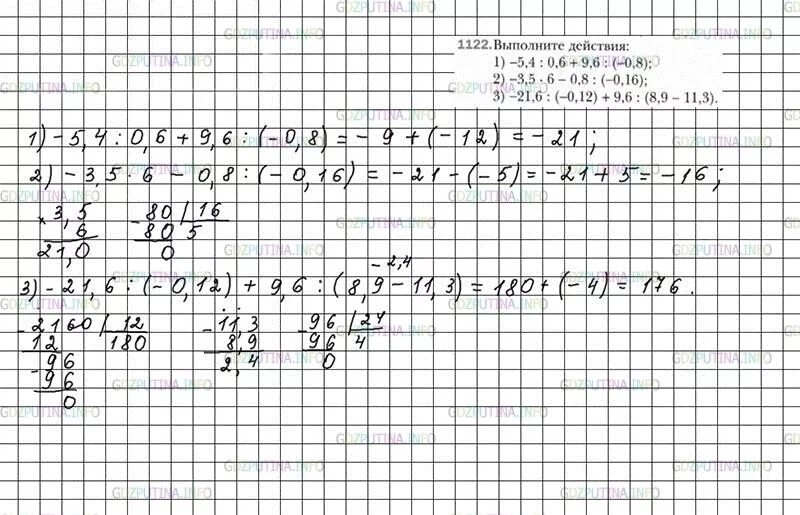 GDZPUTINA.INFO
1122. Выполните действия:
1) –5,4 : 0,6 + 9,6 : (–0,8);
2) –3,5 · 6 – 0,8 : (–0,16);
3) –21,6 : (–0,12) + 9,6 : (8,9 – 11,3).
1) - 5,4 : 0,6 + 9,6 : (-0,8) = - 9 + (-12) = - 21 ;
2) - 3,5 · 6 - 0,8 : (-0,16) = - 21 - (-5) = - 21 + 5 = - 16 ;
× 3,5 - 80 | 16
6 80 5
21,0 0
- 2,4
3) - 21,6 : (-0,12) + 9,6 : (8,9 - 11,3) = 180 + (-4) = 176 .
- 2160 | 12 - 11,3 - 96 | 24
12 180 8,9 96 4
- 96 2,4 0
96
0